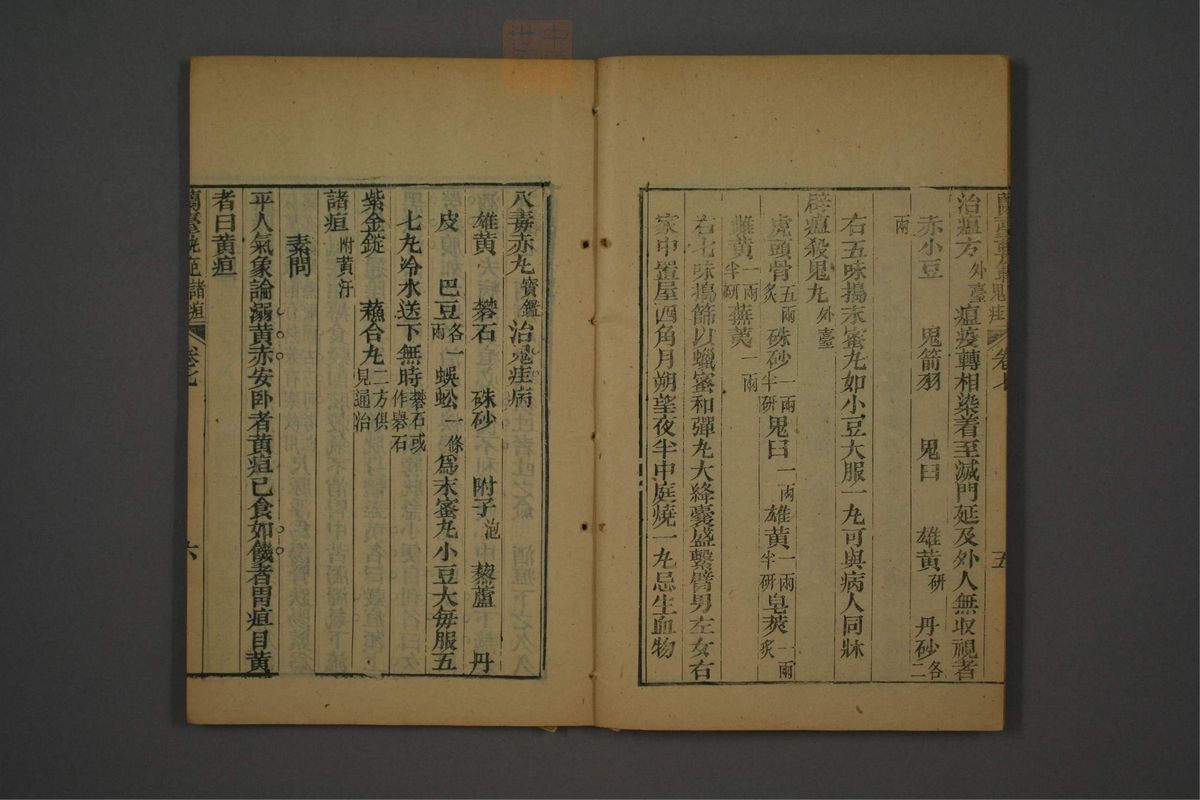 治瘟方外臺瘟疫轉相染着至滅門延及外人無收視者
赤小豆 鬼箭羽 鬼臼 雄黃研 丹砂各二
兩
右五味搗末蜜丸如小豆大服一丸可與病人同牀
辟瘟殺鬼丸外臺
虎頭骨五兩炙硃砂一兩半研鬼臼一兩雄黃一兩半研皂莢一兩炙
雌黃一兩半研蕪荑一兩
右七味搗篩以蠟蜜和彈丸大絳囊盛繫臂男左女右
家中置屋四角月朔望夜半中庭燒一丸忌生血物
五
八毒赤丸寶鑑治鬼疰病
雄黃 礬石 硃砂 附子泡 藜蘆 丹
皮 巴豆各一兩蜈蚣一條爲末蜜丸小豆大每服五
七丸冷水送下無時礬石或作礜石
紫金錠 蘓合丸二方俱見通治
諸疸附黃汗
素問
平人氣象論溺黃赤安卧者黃疸已食如饑者胃疸目黃
者曰黃疸
諸疸 卷七 六